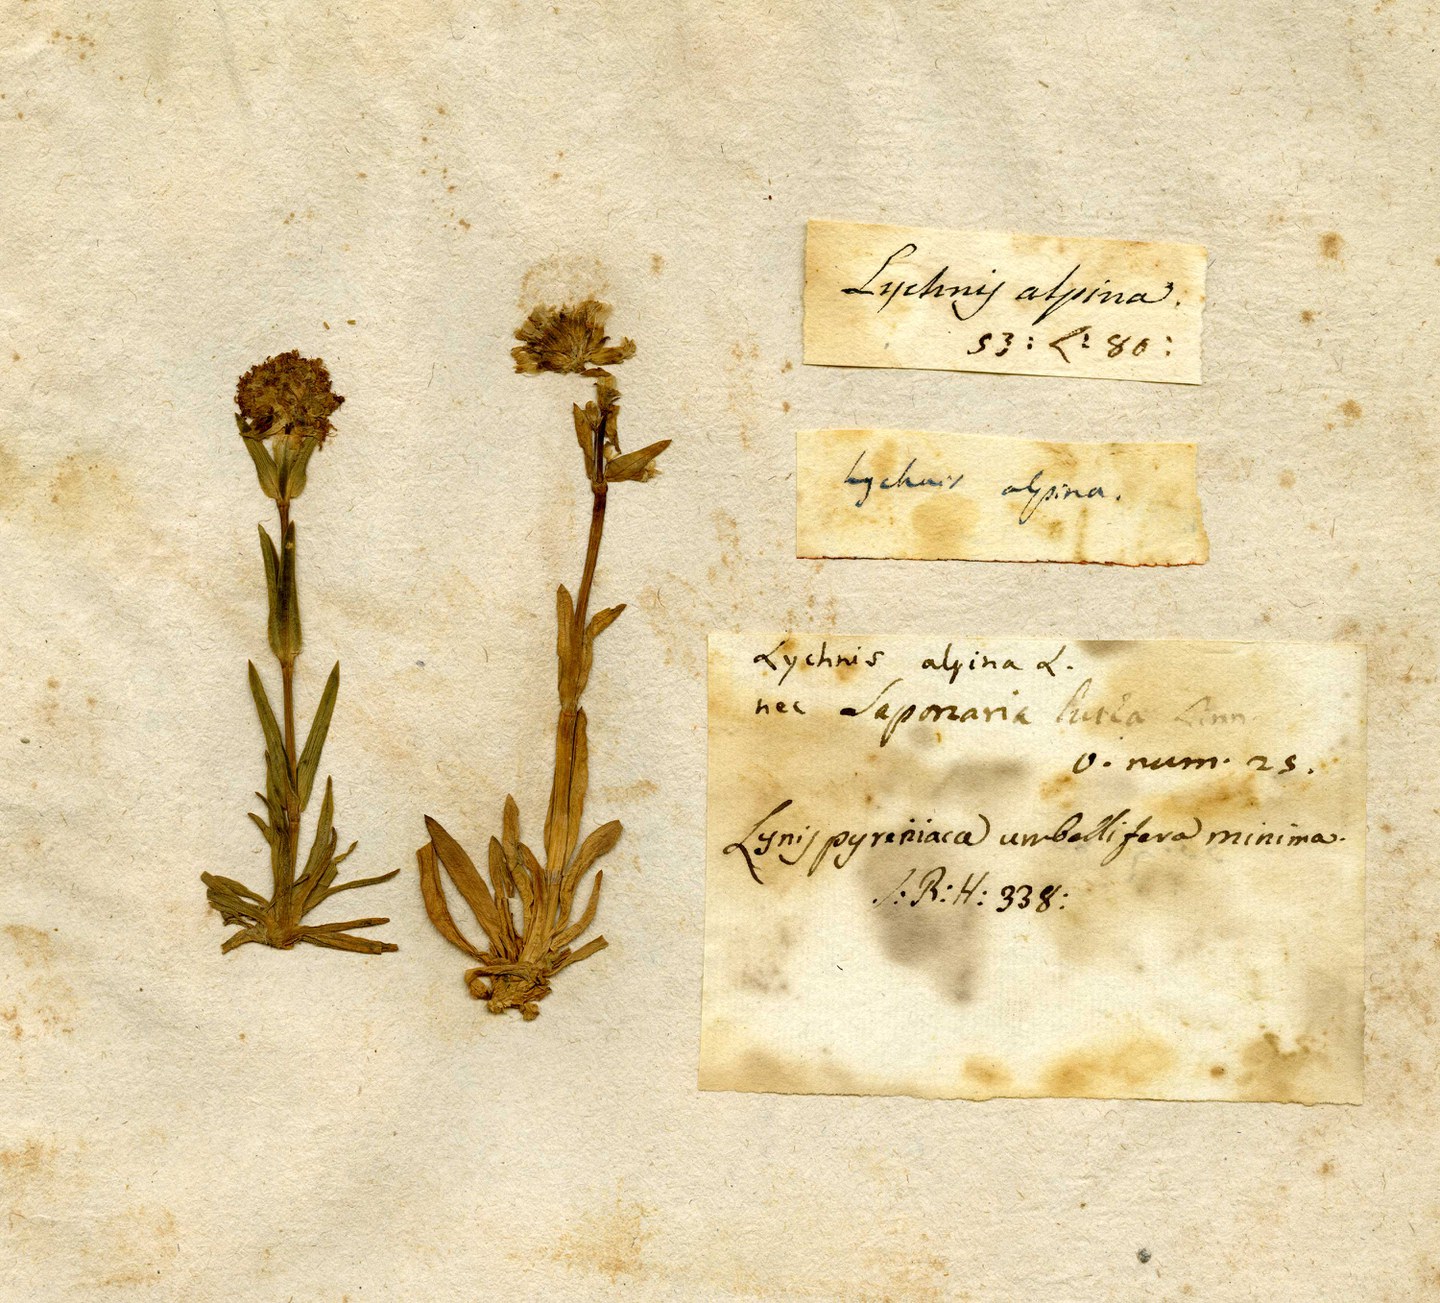 Lychnis alpina.
53: L: 80:
Lychnis alpina.
Lychnis alpina L.
nec Saponaria lutea Linn.
0. num. 25.
Lynis pyreniaca umbellifera minima.
J: R: H: 338: